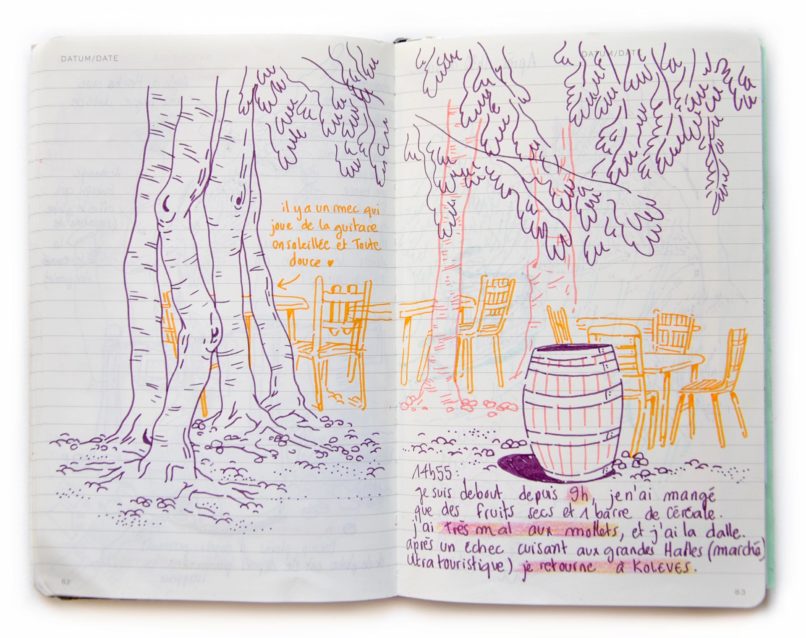 DATUM/DATE
il y a un mec qui
joue de la guitare
ensoleillée et Toute
douce ♥
14h55 :
je suis debout depuis 9h, je n'ai mangé
que des fruits secs et 1 barre de céréale.
j'ai Très mal aux mollets, et j'ai la dalle.
après un echec cuisant aux grandes Halles (marché
ultra touristique) je retourne à KOLEVES.
DATUM/DATE
82
83